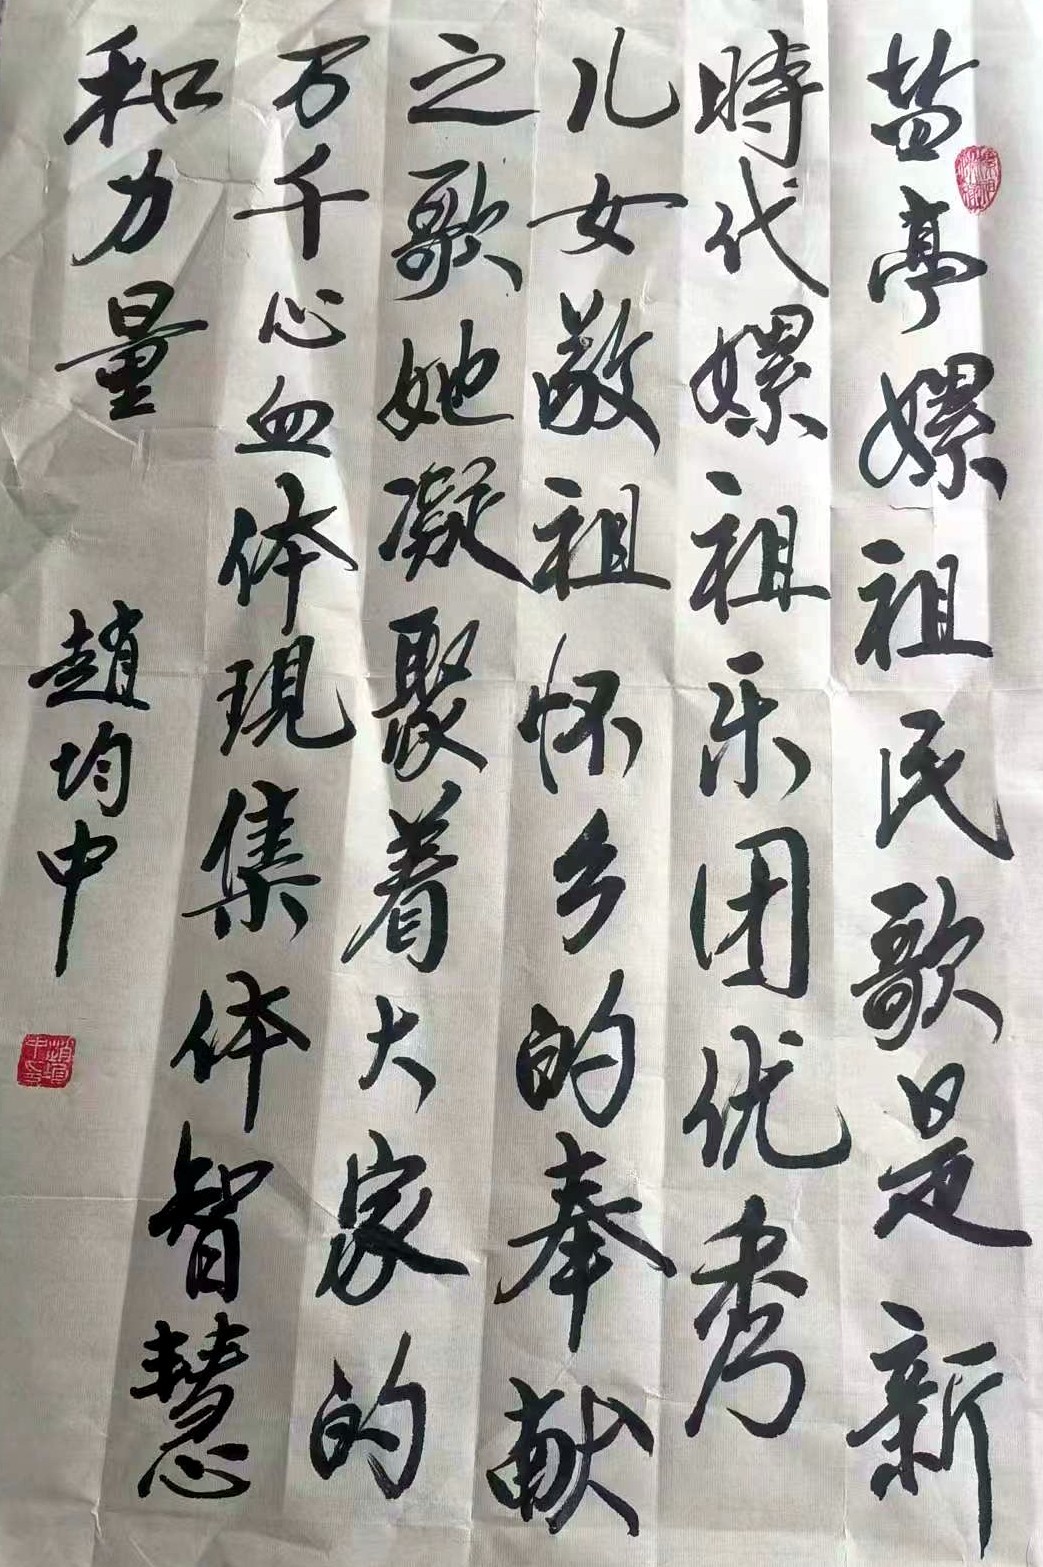 盐亭嫘祖民歌是新
時代嫘祖乐团优秀
儿女敬祖怀乡的奉献
之歌她凝聚着大家的
万千心血体現集体智慧
和力量
趙均中